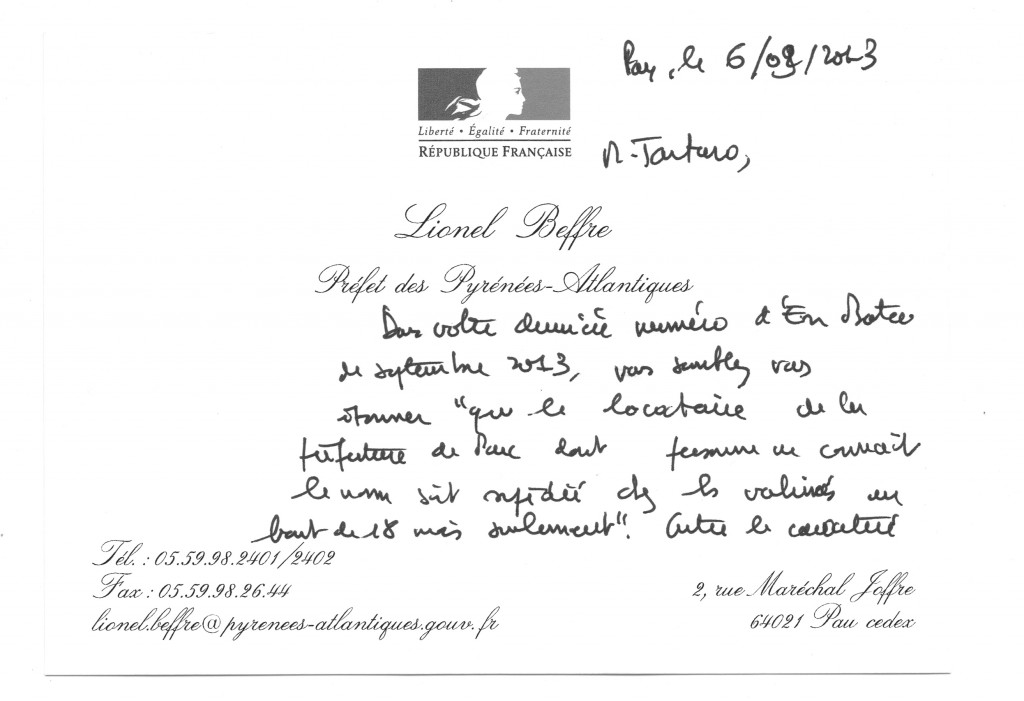 Pau, le 6/09/2013
Liberté • Égalité • Fraternité
RÉPUBLIQUE FRANÇAISE
M. Tartaro,
Lionel Beffre
Préfet des Pyrénées-Atlantiques
Dans votre dernier numéro d'En Bateo
de septembre 2013, vous semblez vous
étonner "que le locataire de la
préfecture de Pau dont personne ne connait
le nom soit expédié chez les valines au
bout de 18 mois seulement". Outre le caractère
Tél. : 05.59.98.2401/2402
Fax : 05.59.98.26.44
lionel.beffre@pyrenees-atlantiques.gouv.fr
2, rue Maréchal Joffre
64021 Pau cedex